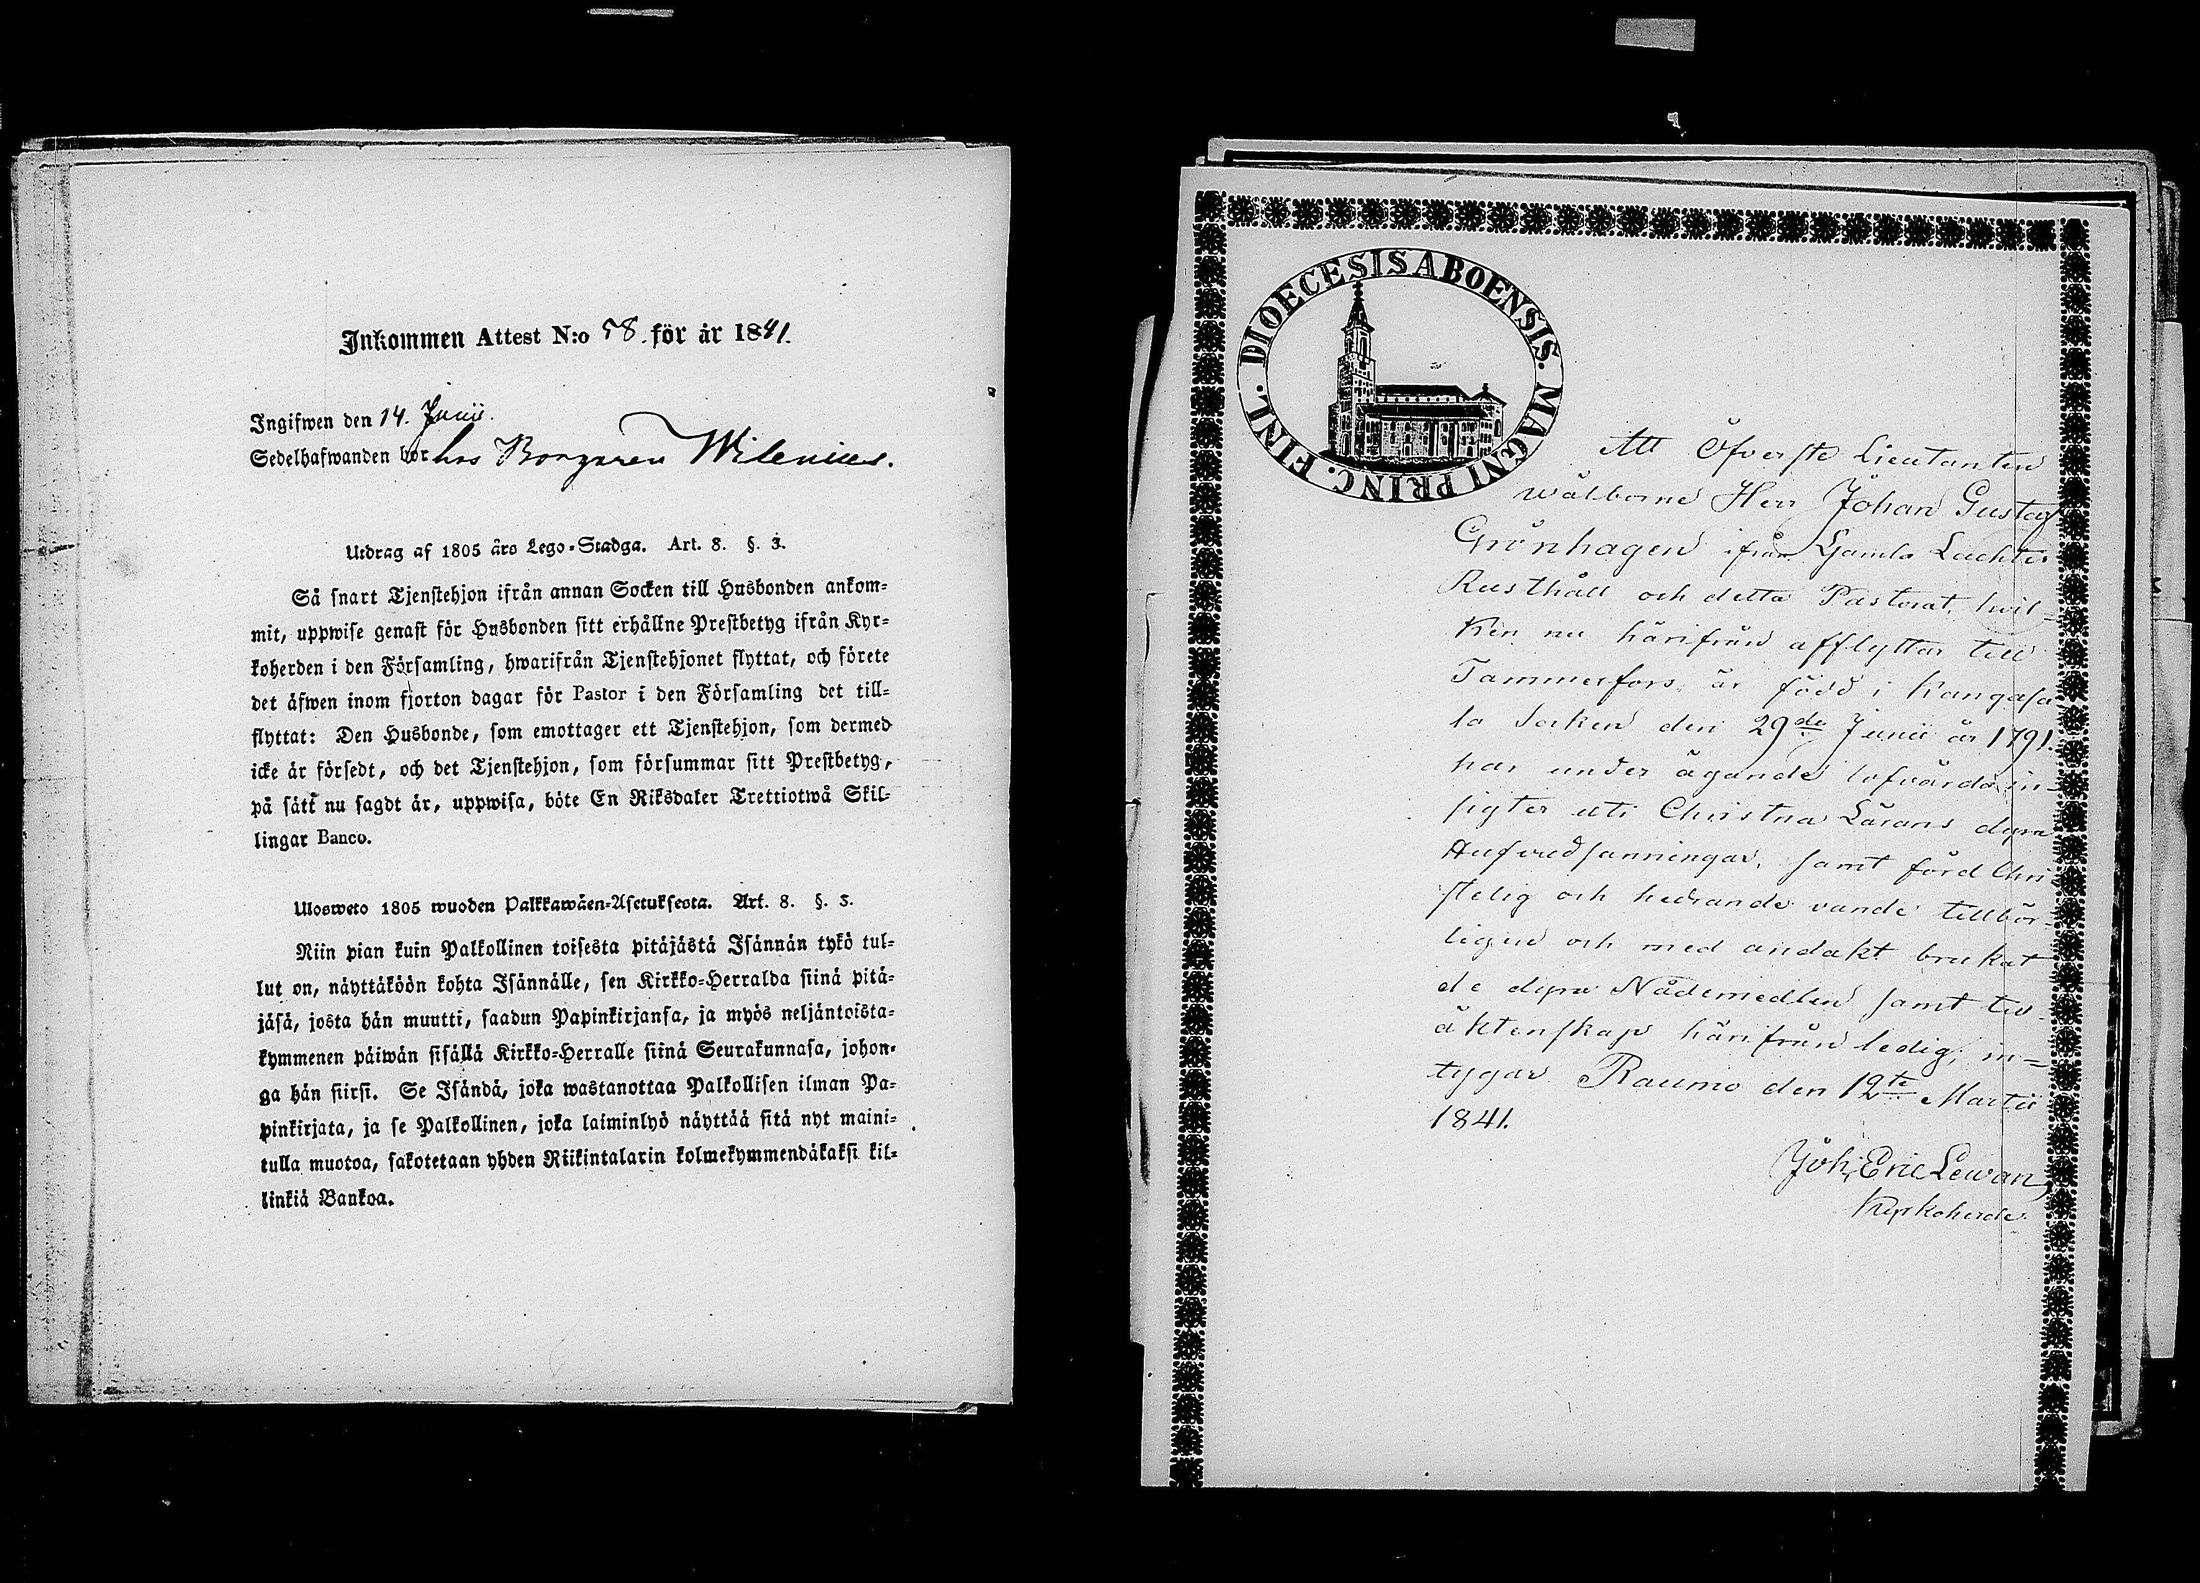 Inkommen Attest N:o 58. för år 1841.
Ingifwen den 14. Junii.
Sedelhafwanden bor hos Borgaren Wilenius.
Utdrag af 1805 års Lego-Stadga. Art. 8. §. 3.
Så snart Tjenstehjon ifrån annan Socken till Husbonden ankom-
mit, uppwise genast för Husbonden sitt erhållne Prestbetyg ifrån Kyr-
koherden i den Församling, hwarifrån Tjenstehjonet flyttat, och förete
det äfwen inom fjorton dagar för Pastor i den Församling det till-
flyttat: Den Husbonde, som emottager ett Tjenstehjon, som dermed
icke är försedt, och det Tjenstehjon, som försummar sitt Prestbetyg,
på sätt nu sagdt är, uppwisa, böte En Riksdaler Trettiotwå Skil-
lingar Banco.
Ulosweto 1805 wuoden Palkkawäen-Asetuksesta. Art. 8. §. 3.
Niin pian kuin Palkollinen toisesta pitäjästä Isännän tykö tul-
lut on, näyttäköön kohta Isännälle, sen Kirkko-Herralda siinä pitä-
jäsä, josta hän muutti, saadun Papinkirjansa, ja myös neljäntoista-
kymmenen päiwän sisällä Kirkko-Herralle siinä Seurakunnasa, johon-
ga hän siirsi. Se Isändä, joka wastanottaa Palkollisen ilman Pa-
pinkirjata, ja se Palkollinen, joka laiminlyö näyttää sitä nyt maini-
tulla muotoa, sakotetaan yhden Riikintalarin kolmekymmendäkaksi kil-
linkiä Bankoa.
DIOECESIS ABOENSIS. MAGNI PRINC. FINL.
Att Öfverste Lieutanten
wälborne Herr Johan Gustaf
Grönhagen ifrån Gamla Luchtis
Rusthåll och detta Pastorat, hvil-
ken nu härifrån afflyttar till
Tammerfors, är född i Kangasa
la Socken den 29de Junii år 1791.
har under ägande lofvärda in-
sigter uti Christna Lärans dyra
Hufvudsanningar, samt förd Chri
stelig och hedrande vandel tillbör-
ligen och med andakt brukat
de dyra Nådemedlen samt till
äktenskap härifrån ledig; in=
tygar Raumo den 12te Martii
1841.
Joh. Eric Lewan,
Kyrkoherde.